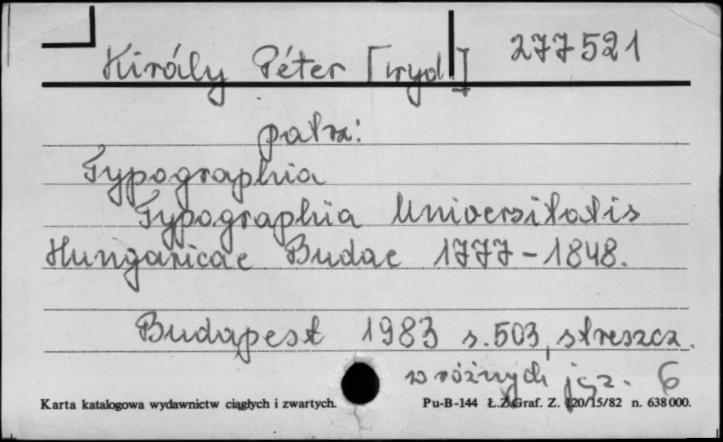 Király Péter [wyd.] 277521
patrz:
Typographia
Typographia Universitatis
Hungaricae Budae 1777-1848.
Budapest 1983 s.503, streszcz.
w różnych jęz. 6
Karta katalogowa wydawnictw ciągłych i zwartych. Pu-B-144 Ł.Z.Graf. Z. 120/15/82 n. 638000.